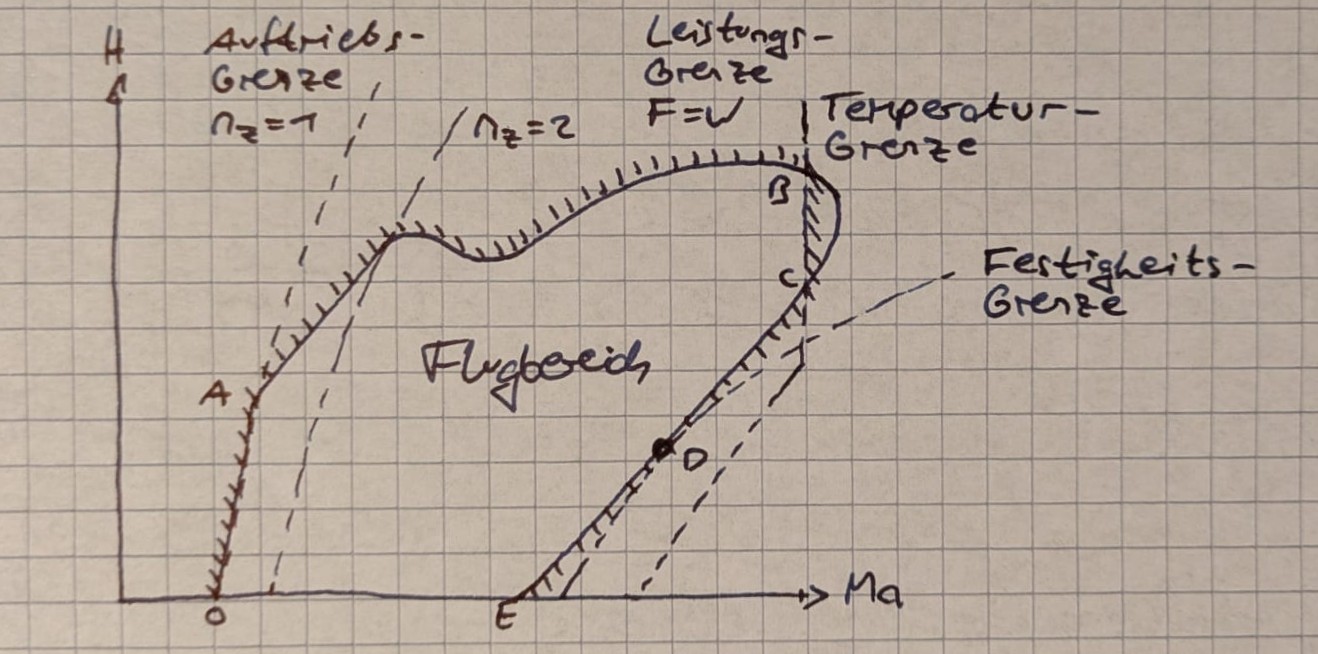 H
Auftriebs-
Grenze
n_z=1
n_z=2
Leistungs-
Grenze
F=W
Temperatur-
Grenze
B
Festigkeits-
Grenze
C
Flugbereich
A
D
O
E
Ma